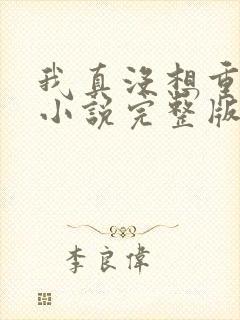 我真没想重
小說完整版
李良偉